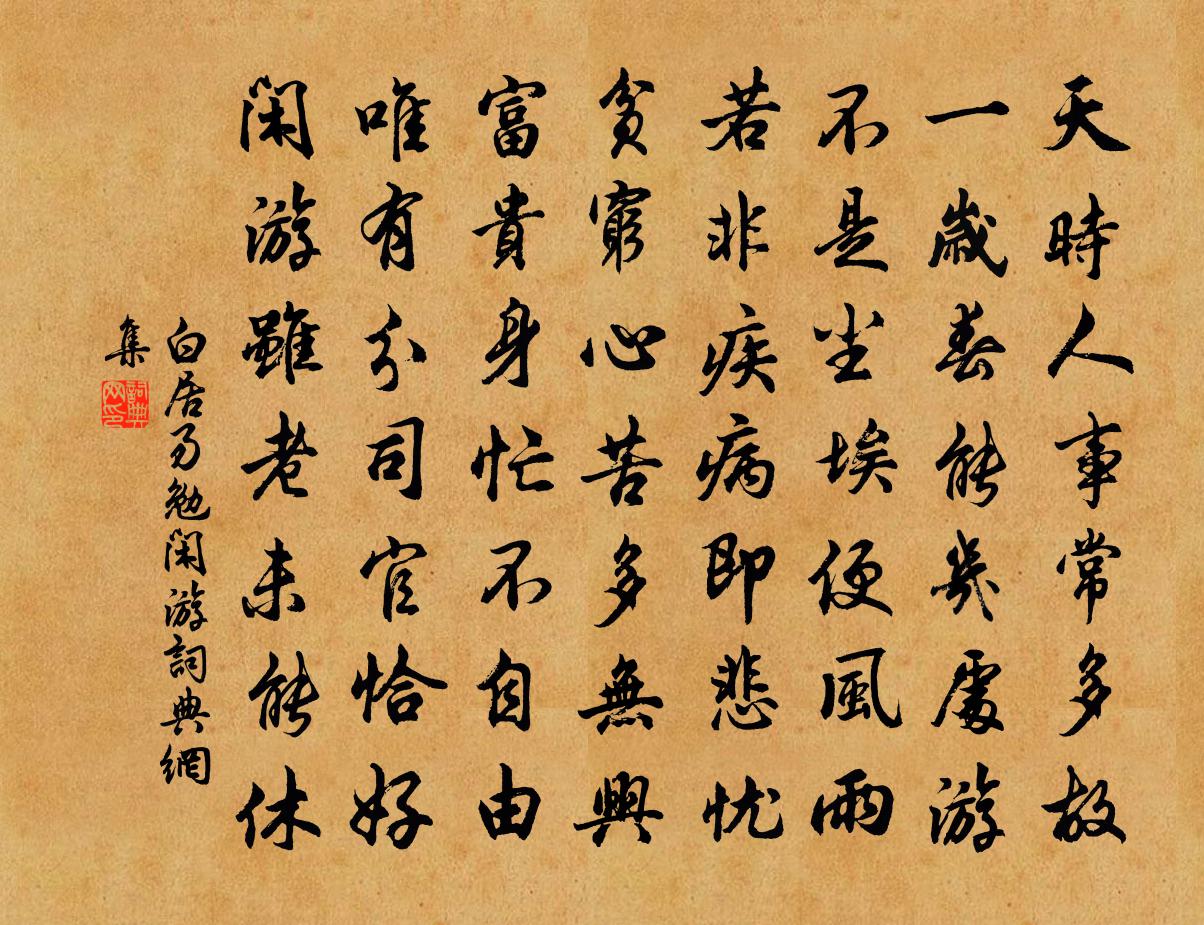 天時人事常多故
一歲春能幾處游
不是尘埃便風雨
若非疾病即悲忧
貧窮心苦多無興
富貴身忙不自由
唯有分司官恰好
閑游雖老未能休
白居易勉閑游詞典網
集
詞典網印